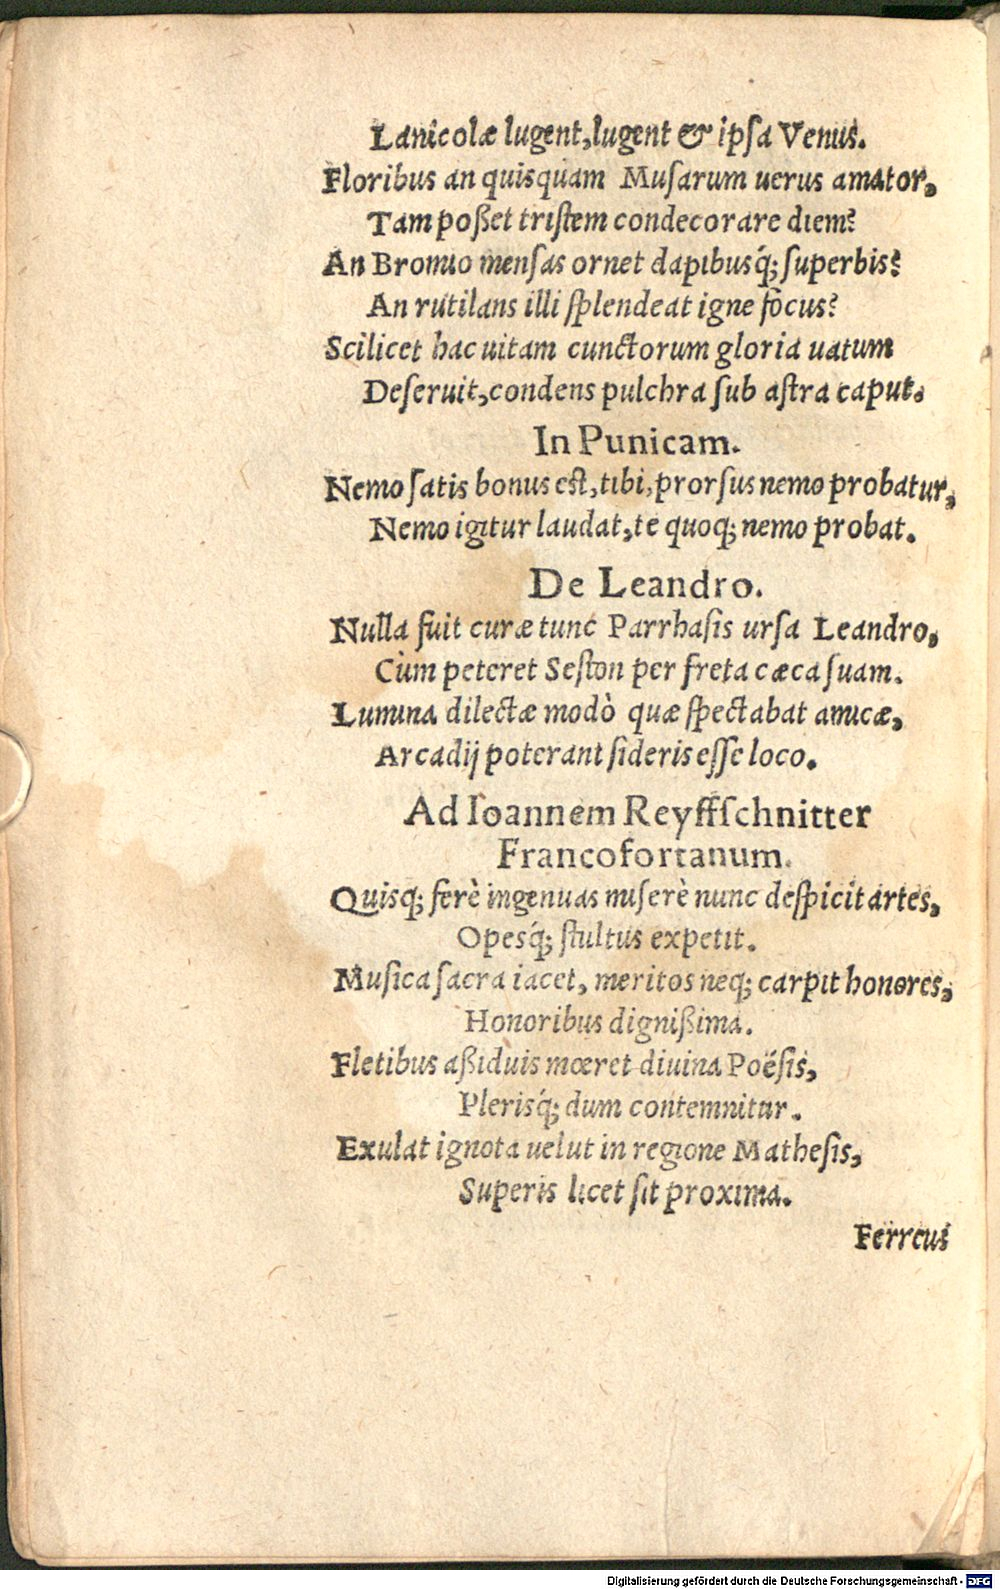 Lanicolæ lugent, lugent & ipsa Venus.
Floribus an quisquam Musarum uerus amator,
Tam poßet tristem condecorare diem?
An Bromio mensas ornet dapibusq́; superbis?
An rutilans illi splendeat igne focus?
Scilicet hac uitam cunctorum gloria uatum
Deseruit, condens pulchra sub astra caput.
In Punicam.
Nemo satis bonus est, tibi, prorsus nemo probatur,
Nemo igitur laudat, te quoq; nemo probat.
De Leandro.
Nulla fuit curæ tunc Parrhasis ursa Leandro,
Cùm peteret Seston per freta cæca suam.
Lumina dilectæ modò quæ spectabat amicæ,
Arcadij poterant sideris esse loco.
Ad Ioannem Reyffschnitter
Francofortanum.
Quisq; ferè ingenuas miserè nunc despicit artes,
Opesq́; stultus expetit.
Musica sacra iacet, meritos neq; carpit honores,
Honoribus dignißima.
Fletibus aßiduis mœret diuina Poësis,
Plerisq́; dum contemnitur.
Exulat ignota uelut in regione Mathesis,
Superis licet sit proxima.
Ferreus
Digitalisierung gefördert durch die Deutsche Forschungsgemeinschaft - DFG